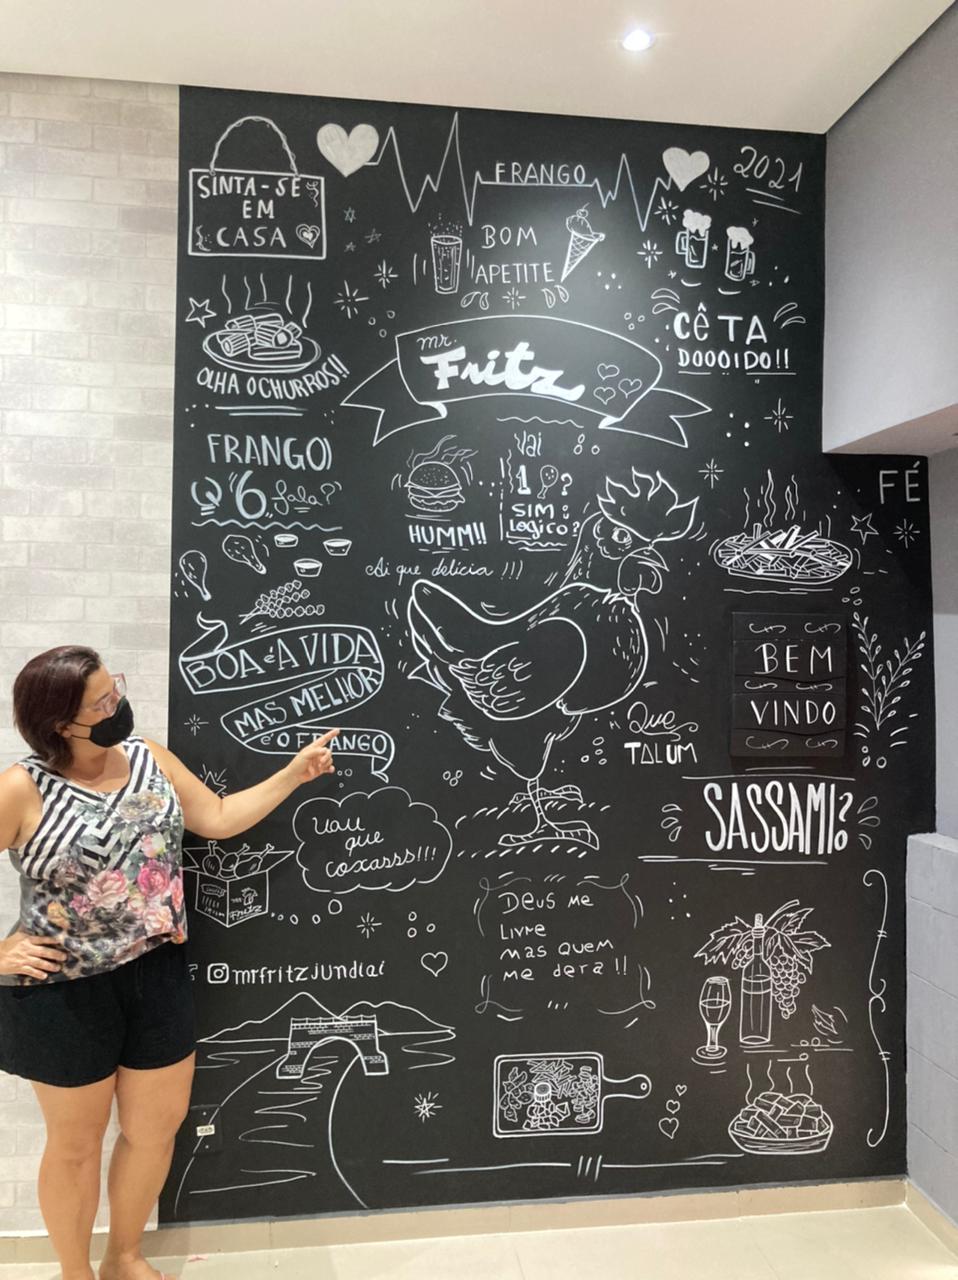 SINTA-SE
EM
CASA
FRANGO
2021
BOM
APETITE
CÊ TA
DOOOIDO!!
OLHA O CHURROS!!
mr.
Fritz
FRANGO)
Q "6" fala?
HUMM!!
Vai
1 ?
SIM
Logico?
Ai que delicia !!!
FÉ
BOA é A VIDA
MAS MELHOR
é O FRANGO
BEM
VINDO
Que
TAL UM
SASSAMI?
Uau
que
coxasss!!!
Fritz
Deus me
Livre
mas quem
me dera !!
@mrfritzjundiai